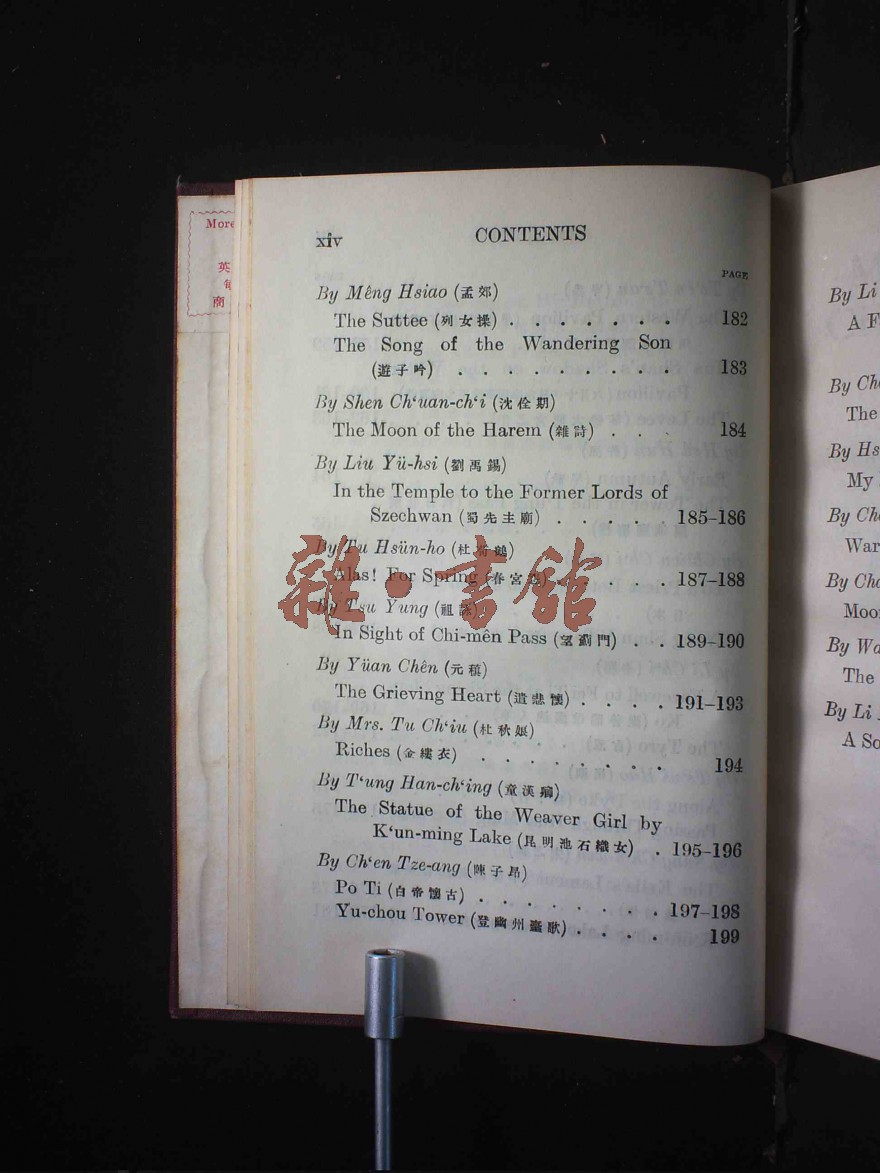 More
英
商
xiv
CONTENTS
PAGE
By Mêng Hsiao (孟郊)
The Suttee (列女操) . . . . . . . 182
The Song of the Wandering Son
(遊子吟) . . . . . . . . . 183
By Shen Ch‘uan-ch‘i (沈佺期)
The Moon of the Harem (雜詩) . . . . 184
By Liu Yü-hsi (劉禹錫)
In the Temple to the Former Lords of
Szechwan (蜀先主廟) . . . . . 185–186
By Tu Hsün-ho (杜荀鶴)
Alas! For Spring (春宮怨) . . . . . 187–188
By Tsu Yung (祖詠)
In Sight of Chi-mên Pass (望薊門) . . . 189–190
By Yüan Chên (元稹)
The Grieving Heart (遣悲懷) . . . . 191–193
By Mrs. Tu Ch‘iu (杜秋娘)
Riches (金縷衣) . . . . . . . . 194
By T‘ung Han-ch‘ing (童漢卿)
The Statue of the Weaver Girl by
K‘un-ming Lake (昆明池石織女) . 195–196
By Ch‘en Tze-ang (陳子昂)
Po Ti (白帝懷古) . . . . . . . . 197–198
Yu-chou Tower (登幽州臺歌) . . . . 199
雜·書館
By Li
A F
By Cha
The
By Hs
My
By Cha
War
By Cha
Moon
By Wa
The
By Li
A So